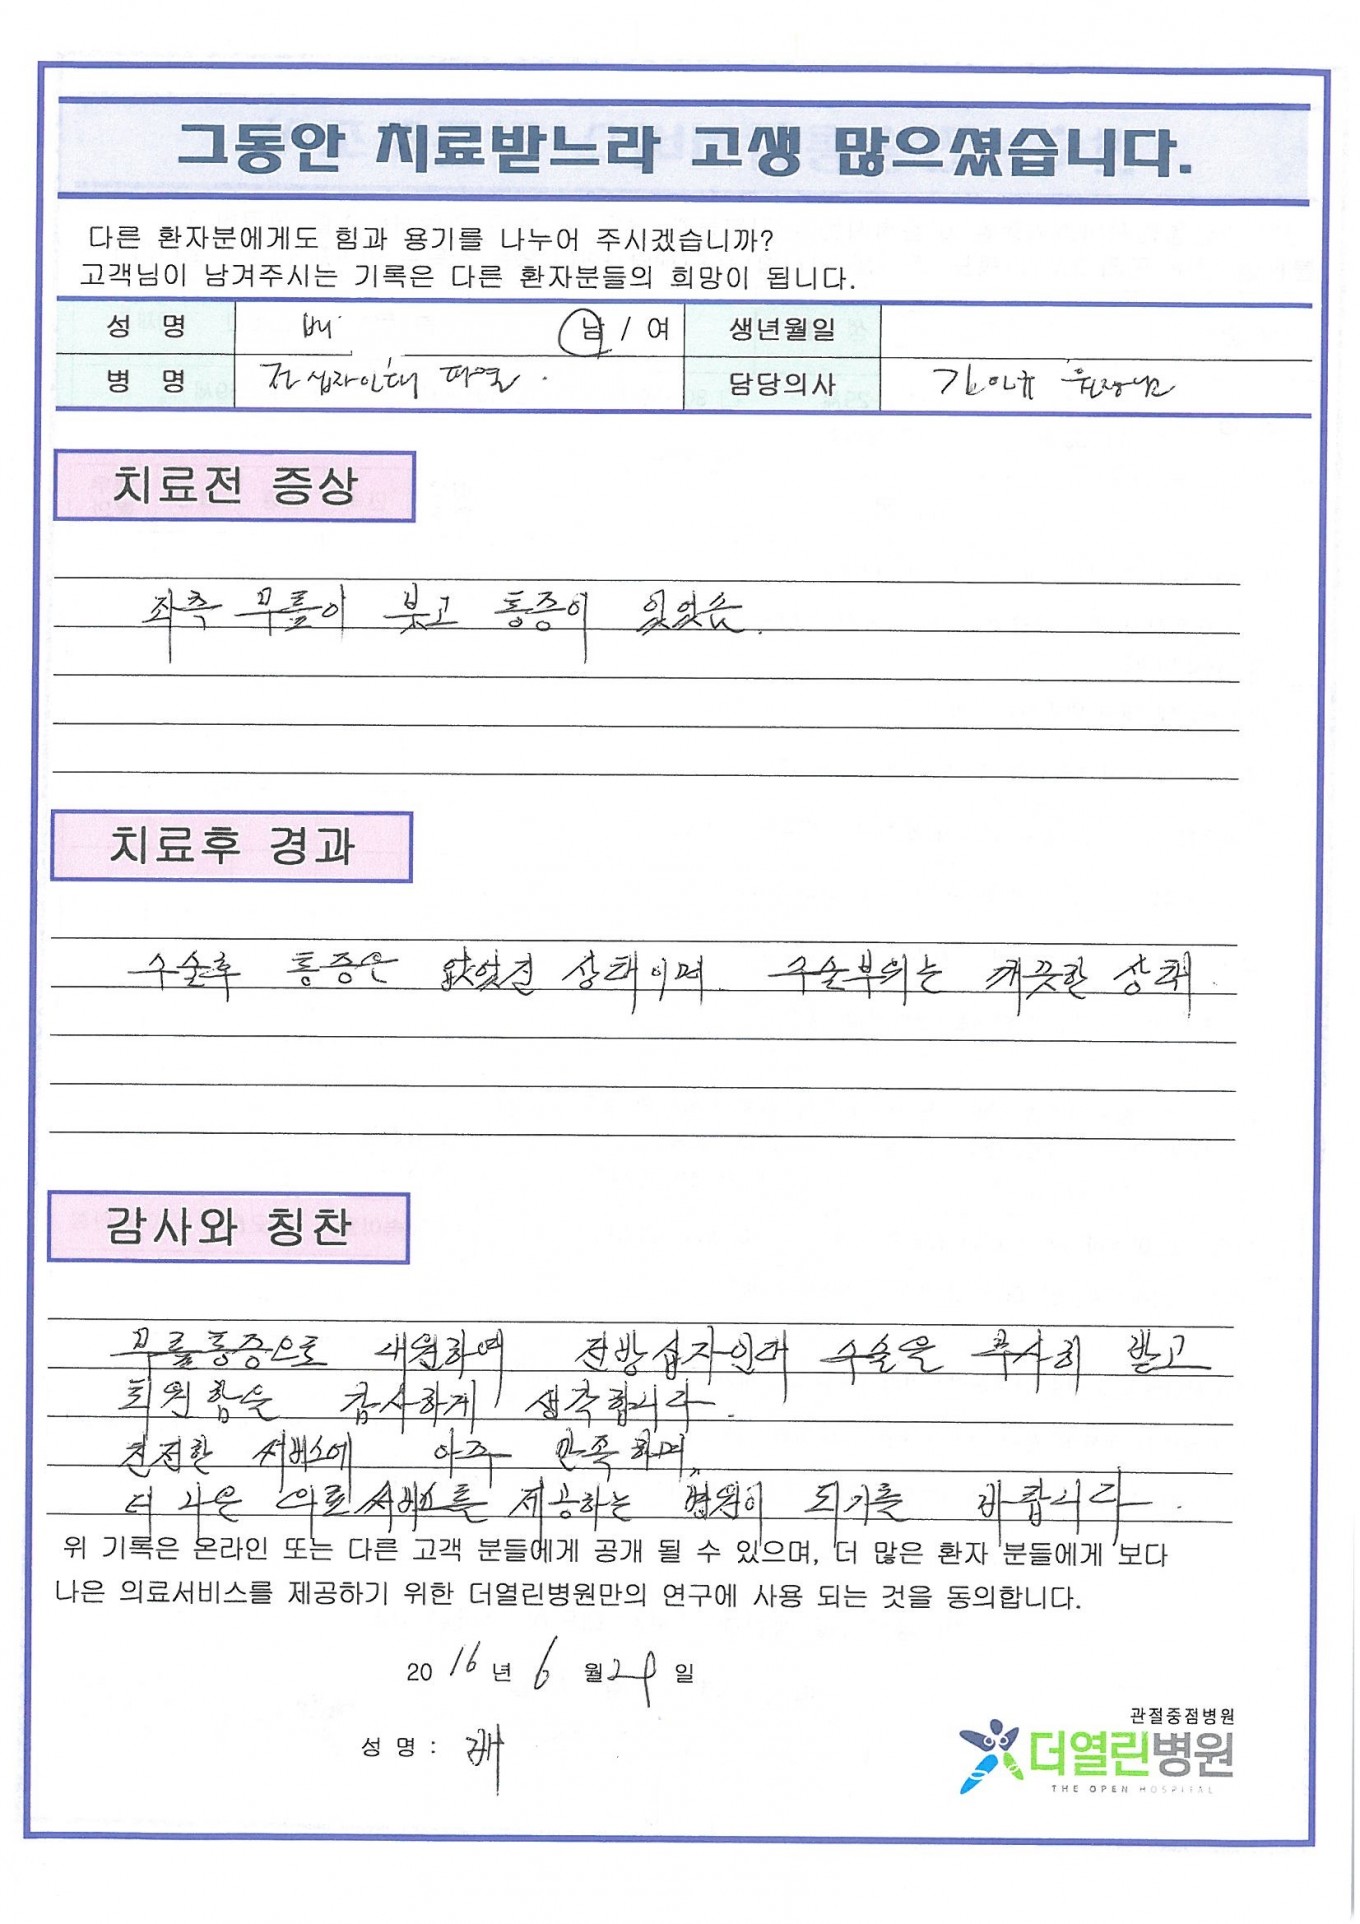 그동안 치료받느라 고생 많으셨습니다.
다른 환자분에게도 힘과 용기를 나누어 주시겠습니까?
고객님이 남겨주시는 기록은 다른 환자분들의 희망이 됩니다.
성 명 배 남 / 여 생년월일
병 명 전십자인대 파열. 담당의사 원장님
치료전 증상
좌측 무릎이 붓고 통증이 있었음.
치료후 경과
수술후 통증은 없었던 상태이며 수술부위는 깨끗한 상태.
감사와 칭찬
무릎통증으로 내원하여 전방십자인대 수술을 무사히 받고
퇴원함을 감사하게 생각합니다.
친절한 서비스에 아주 만족하며,
더 나은 의료서비스를 제공하는 병원이 되기를 바랍니다.
위 기록은 온라인 또는 다른 고객 분들에게 공개 될 수 있으며, 더 많은 환자 분들에게 보다
나은 의료서비스를 제공하기 위한 더열린병원만의 연구에 사용 되는 것을 동의합니다.
2016년 6월 29일
성 명 : 배
관절중점병원
더열린병원
THE OPEN HOSPITAL